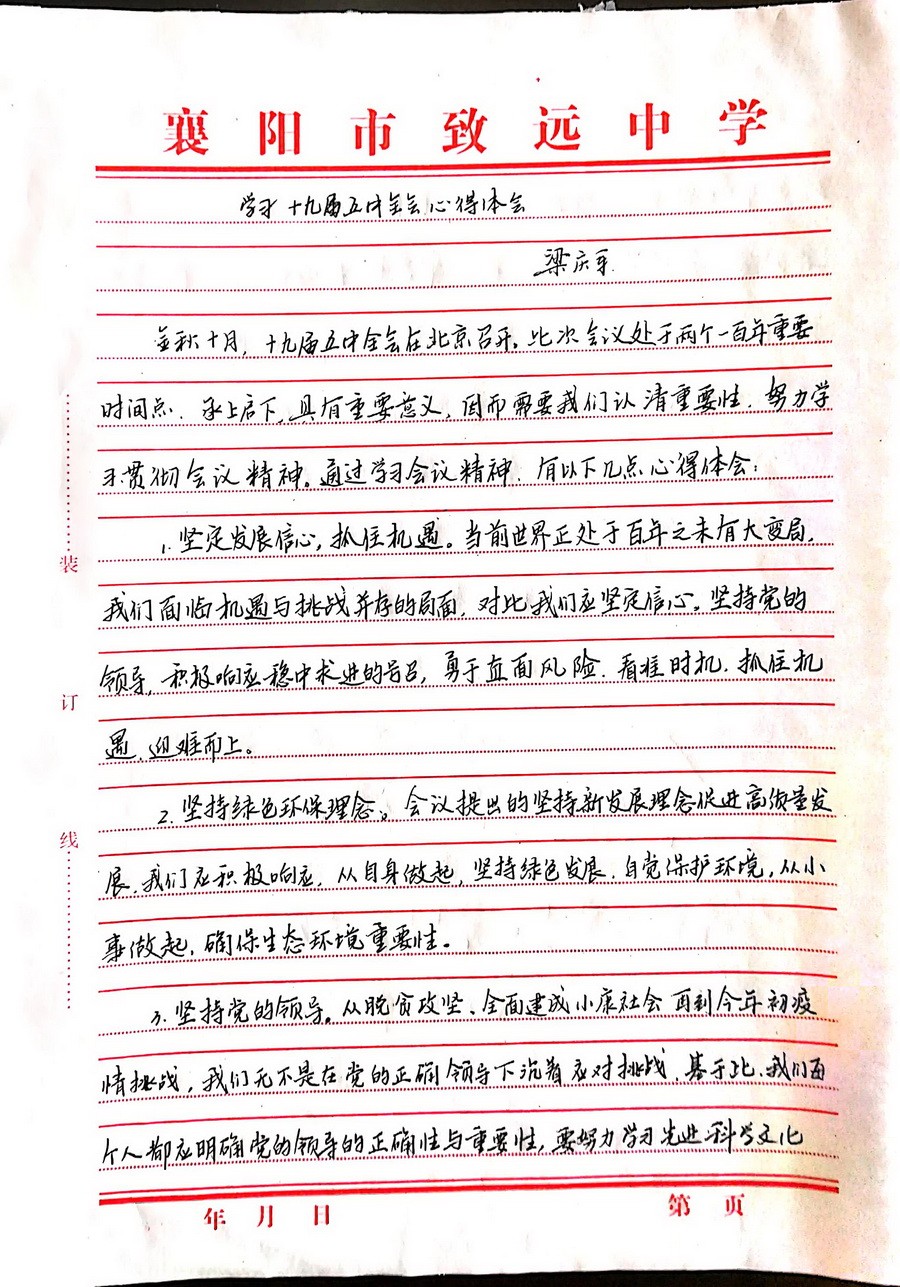 襄阳市致远中学
学习十九届五中全会心得体会
梁庆军
金秋十月，十九届五中全会在北京召开。此次会议处于两个一百年重要
时间点，承上启下，具有重要意义，因而需要我们认清重要性，努力学
习贯彻会议精神。通过学习会议精神，有以下几点心得体会：
1. 坚定发展信心，抓住机遇。当前世界正处于百年之未有大变局，
我们面临机遇与挑战并存的局面，对比我们应坚定信心。坚持党的
领导，积极响应稳中求进的号召，勇于直面风险，看准时机，抓住机
遇，迎难而上。
2. 坚持绿色环保理念。会议提出的坚持新发展理念促进高质量发
展，我们应积极响应，从自身做起，坚持绿色发展，自觉保护环境，从小
事做起，确保生态环境重要性。
3. 坚持党的领导。从脱贫攻坚、全面建成小康社会 再到今年初疫
情挑战，我们无不是在党的正确领导下沉着应对挑战，基于此，我们每
个人都应明确党的领导的正确性与重要性，要努力学习先进科学文化
装
订
线
年 月 日
第 页